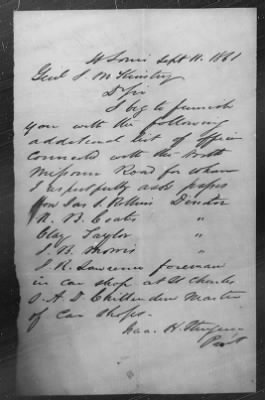 St Louis Sept 11. 1861
Genl J. McKinstry
D Sir
I beg to furnish
you with the following
additional list of officers
connected with the North
Missouri Road for whom
I respectfully ask passes
Hon Jas S. Rollins Director
R. B. Coates "
Clay Taylor "
J. B. Morris "
J. R. Lawrence foreman
in car shop at St Charles
A. D. Chittenden Master
of car shops.
Isaac H. Sturgeon
Prest